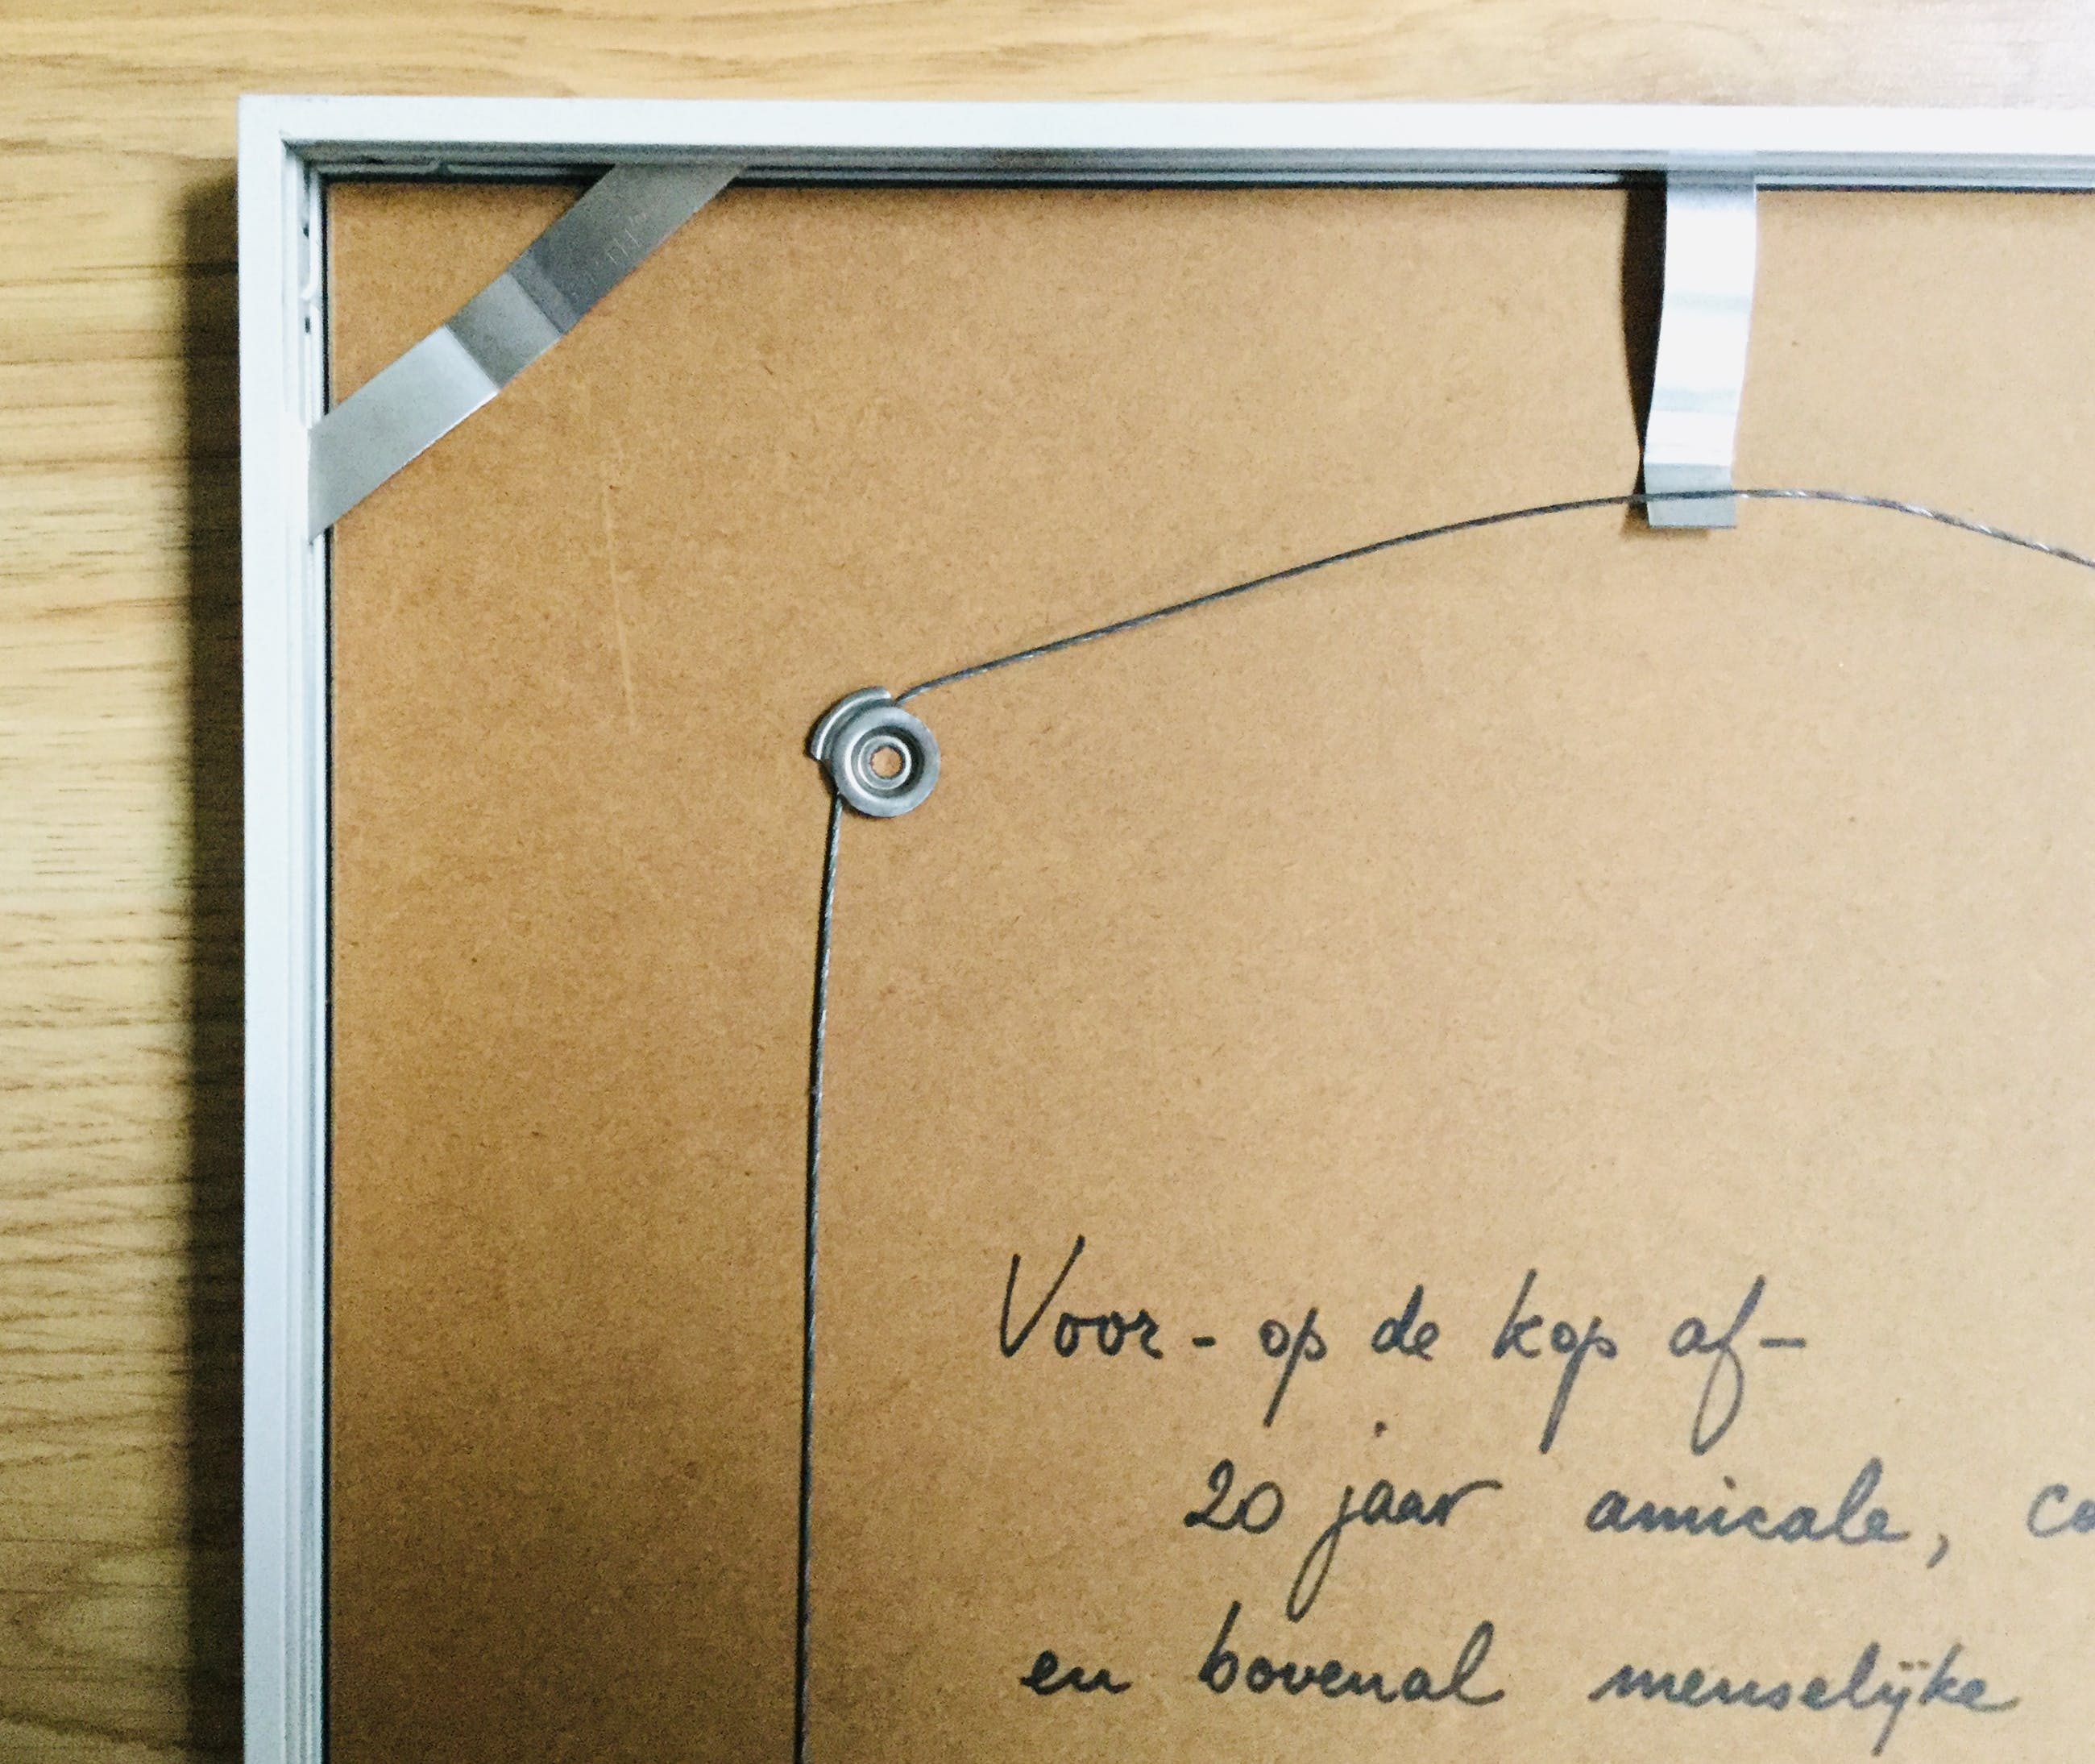 Voor - op de kop af -
20 jaar amicale, co
en bovenal menselijke